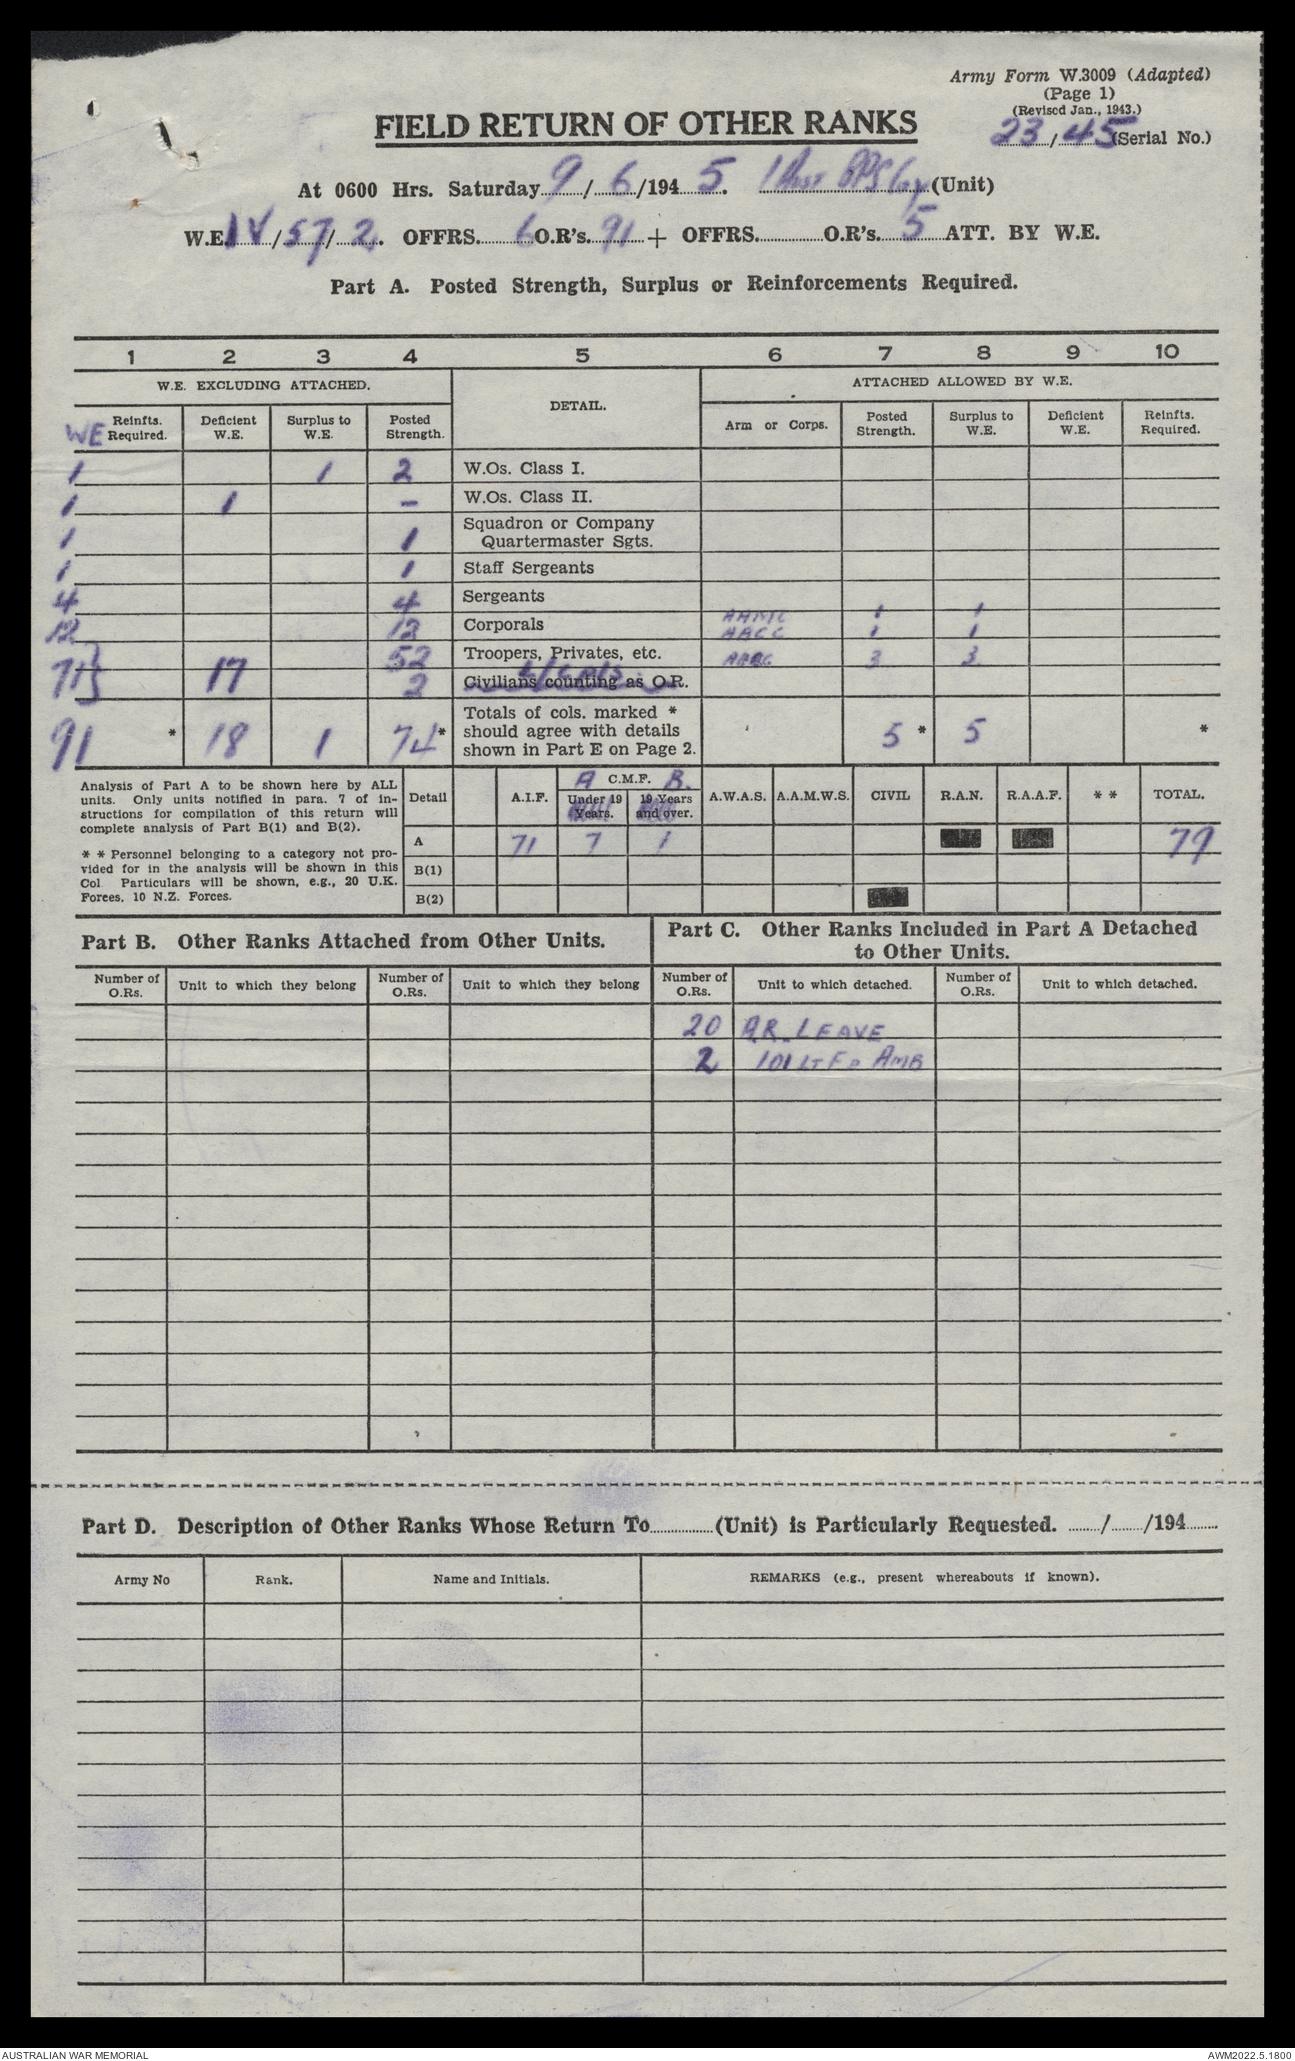 Army Form W.3009 (Adapted)
(Page 1)
(Revised Jan., 1943.)
23/45 (Serial No.)
FIELD RETURN OF OTHER RANKS
At 0600 Hrs. Saturday 9/6/1945. 1 Aust (Unit)
W.E. IV/57/2. OFFRS. 6 O.R's. 91 + OFFRS. O.R's. 5 ATT. BY W.E.
Part A. Posted Strength, Surplus or Reinforcements Required.
1 2 3 4 5 6 7 8 9 10
W.E. EXCLUDING ATTACHED. DETAIL. ATTACHED ALLOWED BY W.E.
WE Reinfts. Required. Deficient W.E. Surplus to W.E. Posted Strength. Arm or Corps. Posted Strength. Surplus to W.E. Deficient W.E. Reinfts. Required.
1 1 2 W.Os. Class I.
1 1 - W.Os. Class II.
1 1 Squadron or Company Quartermaster Sgts.
1 1 Staff Sergeants
4 4 Sergeants
AAMC 1 1
12 12 Corporals AACC 1 1
71} 17 52 Troopers, Privates, etc. AACC 3 3
2 Civilians counting as O.R. L/Cpls
91 * 18 1 74* Totals of cols. marked * should agree with details shown in Part E on Page 2. 5 * 5 *
Analysis of Part A to be shown here by ALL
units. Only units notified in para. 7 of in-
structions for compilation of this return will
complete analysis of Part B(1) and B(2).
* * Personnel belonging to a category not pro-
vided for in the analysis will be shown in this
Col Particulars will be shown, e.g., 20 U.K.
Forces, 10 N.Z. Forces.
Detail A.I.F. A C.M.F. B. Under 19 Years. 19 Years and over. A.W.A.S. A.A.M.W.S. CIVIL R.A.N. R.A.A.F. * * TOTAL.
A 71 7 1 79
B(1)
B(2)
Part B. Other Ranks Attached from Other Units.
Number of O.Rs. Unit to which they belong Number of O.Rs. Unit to which they belong
Part C. Other Ranks Included in Part A Detached
to Other Units.
Number of O.Rs. Unit to which detached. Number of O.Rs. Unit to which detached.
20 A.R. LEAVE
2 101 LT FD AMB
Part D. Description of Other Ranks Whose Return To (Unit) is Particularly Requested. / /194
Army No Rank. Name and Initials. REMARKS (e.g., present whereabouts if known).
AUSTRALIAN WAR MEMORIAL AWM2022.5.1800